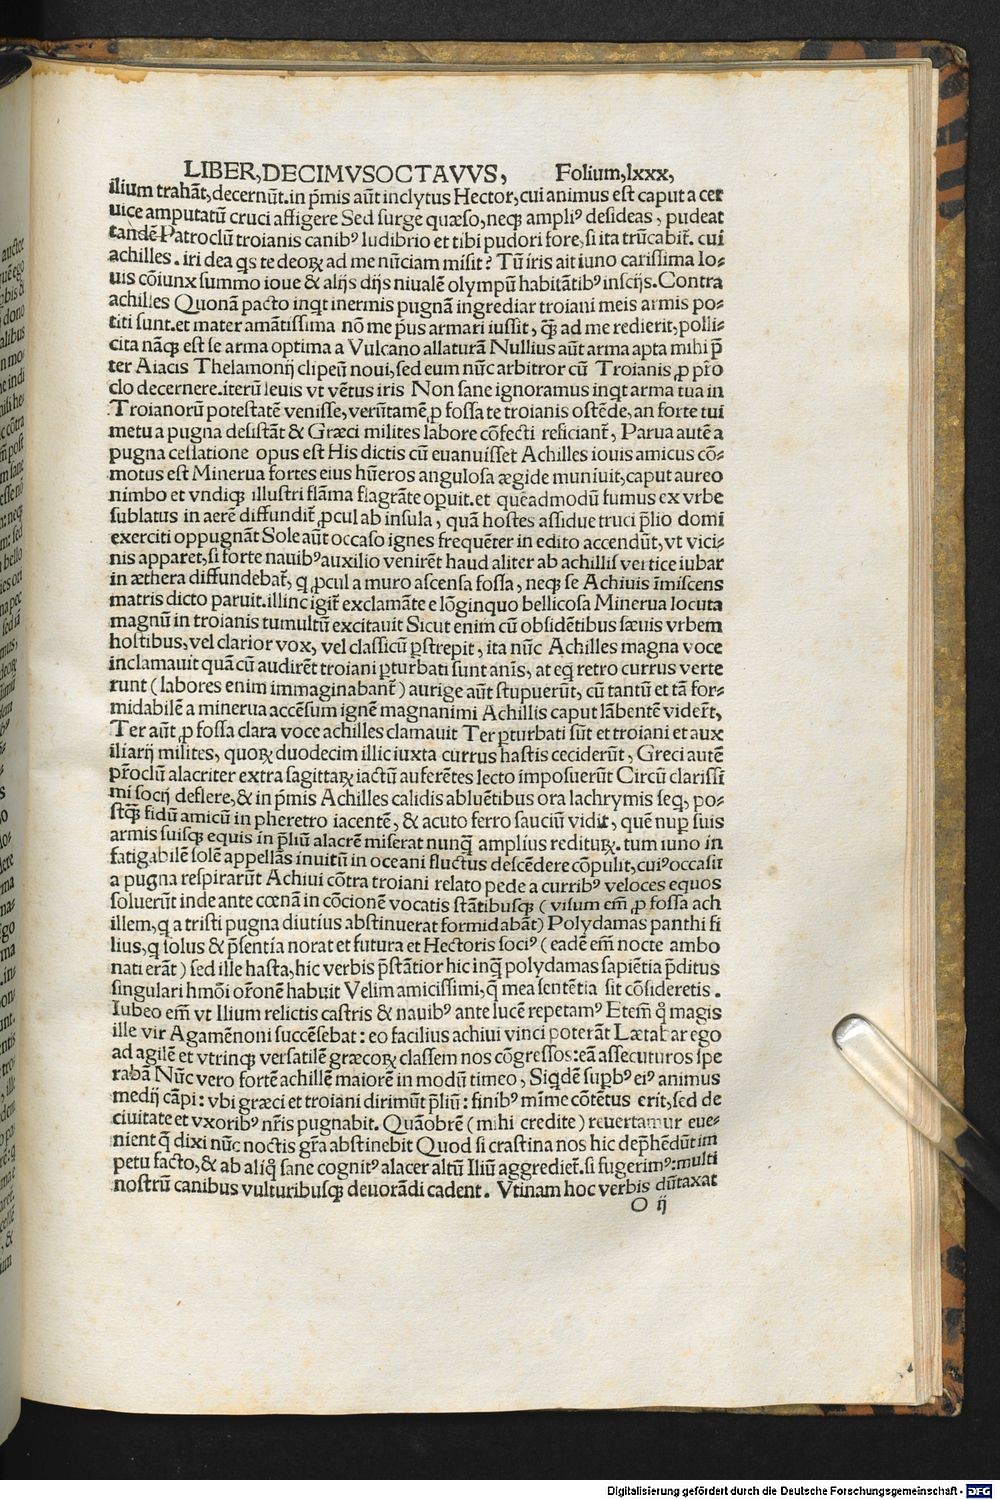 LIBER,DECIMVSOCTAVVS, Folium,lxxx,
ilium trahãt,decernũt.in p̃mis aũt inclytus Hector,cui animus est caput a cer
uice amputatũ cruci affigere Sed surge quæso,neqꝫ ampliꝰ desideas, pudeat
tandẽ Patroclũ troianis canibꝰ ludibrio et tibi pudori fore,si ita trũcabit̃. cui
achilles. iri dea qs te deoꝝ ad me nũciam misit? Tũ iris ait iuno carissima Io⸗
uis cõiunx summo ioue & alijs dijs niualẽ olympũ habitãtibꝰ inscijs. Contra
achilles Quonã pacto inqt inermis pugnã ingrediar troiani meis armis po⸗
titi sunt.et mater amãtissima nõ me p̃us armari iussit, q̃ꝫ ad me redierit,polli⸗
cita nãqꝫ est se arma optima a Vulcano allaturã Nullius aũt arma apta mihi p̃
ter Aiacis Thelamonij clipeũ noui,sed eum nũc arbitror cũ Troianis ꝓ pr̃o
clo decernere.iterũ leuis vt vẽtus iris Non sane ignoramus inqt arma tua in
Troianorũ potestatẽ venisse,verũtamẽ ꝓ fossa te troianis ostẽde,an forte tui
metu a pugna desistãt & Græci milites labore cõfecti reficiant̃, Parua autẽ a
pugna cessatione opus est His dictis cũ euanuisset Achilles iouis amicus cõ⸗
motus est Minerua fortes eius hũeros angulosa ægide muniuit,caput aureo
nimbo et vndiqꝫ illustri flãma flagrãte opuit.et quẽadmodũ fumus ex vrbe
sublatus in aerẽ diffundit̃ ꝓcul ab insula, quã hostes assidue truci p̃lio domi
exerciti oppugnãt Sole aũt occaso ignes frequẽter in edito accendũt,vt vici⸗
nis apparet,si forte nauibꝰ auxilio venirẽt haud aliter ab achillis vertice iubar
in æthera diffundebat̃, q ꝓcul a muro ascensa fossa, neqꝫ se Achiuis ĩmiscens
matris dicto paruit.illinc igit̃ exclamãte e lõginquo bellicosa Minerua locuta
magnũ in troianis tumultũ excitauit Sicut enim cũ obsidẽtibus sæuis vrbem
hostibus,vel clarior vox, vel classicũ p̃strepit, ita nũc Achilles magna voce
inclamauit quã cũ audirẽt troiani ꝑturbati sunt anĩs, at eq̃ retro currus verte
runt (labores enim immaginabant̃) aurige aũt stupuerũt, cũ tantũ et tã for⸗
midabilẽ a minerua accẽsum ignẽ magnanimi Achillis caput lãbentẽ viderũt,
Ter aũt ꝓ fossa clara voce achilles clamauit Ter ꝑturbati sũt et troiani et aux
iliarij milites, quoꝝ duodecim illic iuxta currus hastis ceciderũt, Greci autẽ
pr̃oclũ alacriter extra sagittaꝝ iactũ auferẽtes lecto imposuerũt Circũ clarissi
mi socij deflere,& in p̃mis Achilles calidis abluẽtibus ora lachrymis seq, po⸗
stq̃ꝫ fidũ amicũ in pheretro iacentẽ, & acuto ferro sauciũ vidit, quẽ nuꝑ suis
armis suisqꝫ equis in p̃liũ alacrẽ miserat nunq̃ amplius redituꝝ. tum iuno in
fatigabilẽ solẽ appellãs inuitũ in oceani fluctus descẽdere cõpulit,cuiꝰ occasu
a pugna respirarũt Achiui cõtra troiani relato pede a curribꝰ veloces equos
soluerũt inde ante cœnã in cõcionẽ vocatis stãtibusqꝫ (visum em̃ ꝓ fossa ach
illem, q a tristi pugna diutius abstinuerat formidabãt) Polydamas panthi fi
lius,q solus & p̃sentia norat et futura et Hectoris sociꝰ (eadẽ em̃ nocte ambo
nati erãt) sed ille hasta,hic verbis p̃stãtior hic inq̃ polydamas sapiẽtia p̃ditus
singulari hmõi or̃onẽ habuit Velim amicissimi,q̃ mea sentẽtia sit cõsideretis.
Iubeo em̃ vt Ilium relictis castris & nauibꝰ ante lucẽ repetamꝰ Etem̃ q̃ magis
ille vir Agamẽnoni succẽsebat: eo facilius achiui vinci poterãt Lætabar ego
ad agilẽ et vtrinqꝫ versatilẽ græcoꝝ classem nos cõgressos:eã assecuturos spe
rabã Nũc vero fortẽ achillẽ maiorẽ in modũ timeo, Siqdẽ suꝑbꝰ eiꝰ animus
medij cãpi: vbi græci et troiani dirimũt p̃liũ: finibꝰ mĩme cõtẽtus erit,sed de
ciuitate et vxoribꝰ nr̃is pugnabit. Quãobrẽ (mihi credite) reuertamur eue⸗
nient q̃ dixi nũc noctis gr̃a abstinebit Quod si crastina nos hic dep̃hẽdũt im
petu facto,& ab aliq̃ sane cognitꝰ alacer altũ Iliũ aggrediet̃.si fugerimꝰ:multi
nostrũ canibus vulturibusqꝫ deuorãdi cadent. Vtinam hoc verbis dũtaxat
O ij
Digitalisierung gefördert durch die Deutsche Forschungsgemeinschaft - DFG